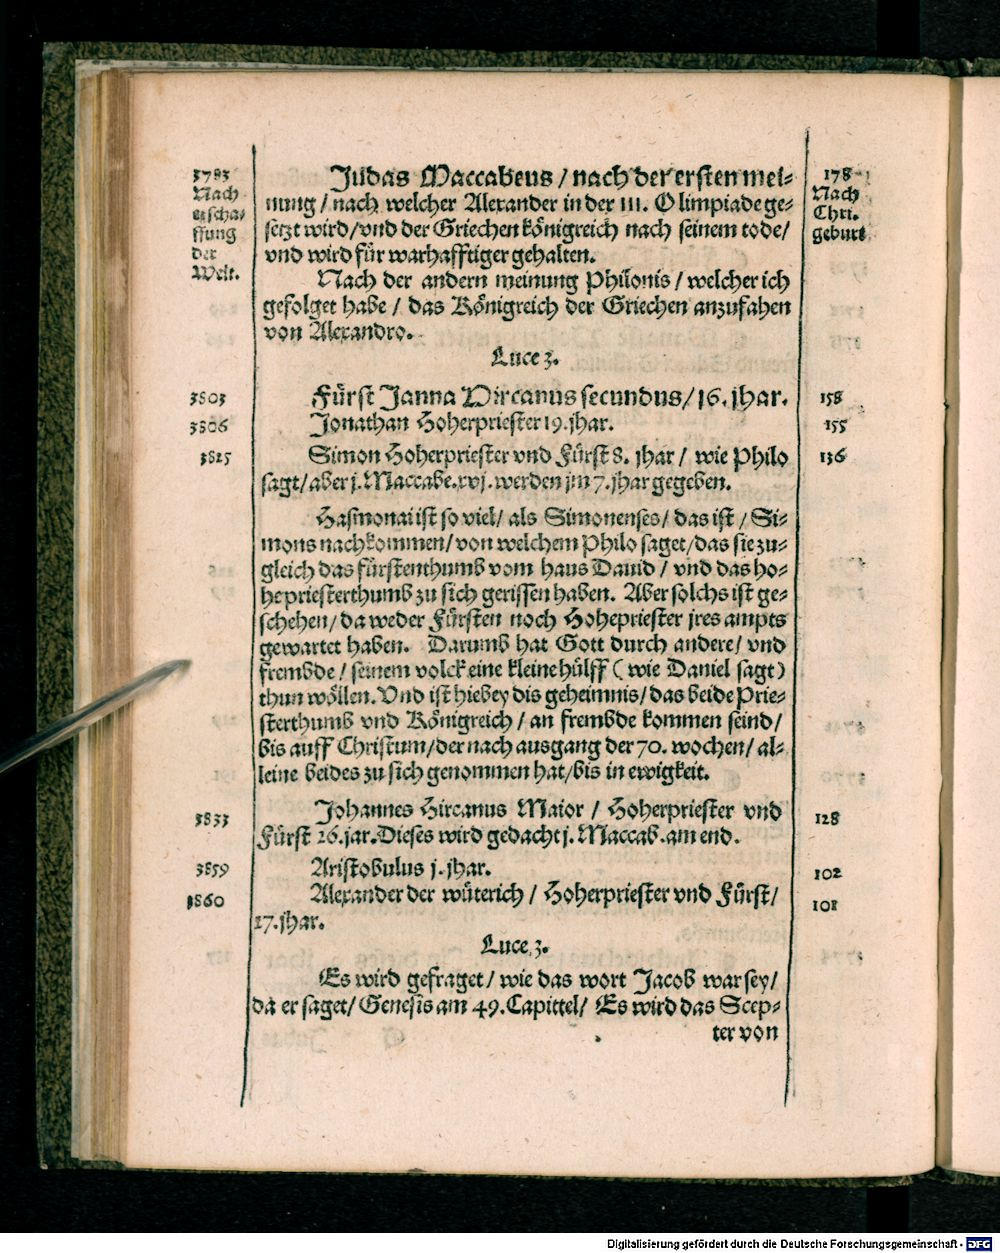 3783
Nach
erscha-
ffung
der
Welt.
178
Nach
Chri.
geburt
Judas Maccabeus / nach der ersten mei-
nung / nach welcher Alexander in der 111. Olimpiade ge-
setzt wird / vnd der Griechen königreich nach seinem tode /
vnd wird für warhafftiger gehalten.
Nach der andern meinung Philonis / welcher ich
gefolget habe / das Königreich der Griechen anzufahen
von Alexandro.
Luce 3.
3803 Fürst Janna Hircanus secundus / 16. jhar. 158
3806 Jonathan Hoherpriester 19. jhar. 155
3825 Simon Hoherpriester vnd Fürst 8. jhar / wie Philo 136
sagt / aber j. Maccabe. xvj. werden jm 7. jhar gegeben.
Hasmonai ist so viel / als Simonenses / das ist / Si-
mons nachkommen / von welchem Philo saget / das sie zu-
gleich das fürstenthumb vom haus Dauid / vnd das ho-
hepriesterthumb zu sich gerissen haben. Aber solchs ist ge-
schehen / da weder Fürsten noch Hohepriester jres ampts
gewartet haben. Darumb hat Gott durch andere / vnd
frembde / seinem volck eine kleine hülff ( wie Daniel sagt )
thun wöllen. Vnd ist hiebey dis geheimnis / das beide Prie-
sterthumb vnd Königreich / an frembde kommen seind /
bis auff Christum / der nach ausgang der 70. wochen / al-
leine beides zu sich genommen hat / bis in ewigkeit.
3833 Johannes Hircanus Maior / Hoherpriester vnd 128
Fürst 26. jar. Dieses wird gedacht j. Maccab. am end.
3859 Aristobulus j. jhar. 102
3860 Alexander der wüterich / Hoherpriester vnd Fürst / 101
27. jhar.
Luce, 3.
Es wird gefraget / wie das wort Jacob war sey /
da er saget / Genesis am 49. Capittel / Es wird das Scep-
ter von
Digitalisierung gefördert durch die Deutsche Forschungsgemeinschaft - DFG